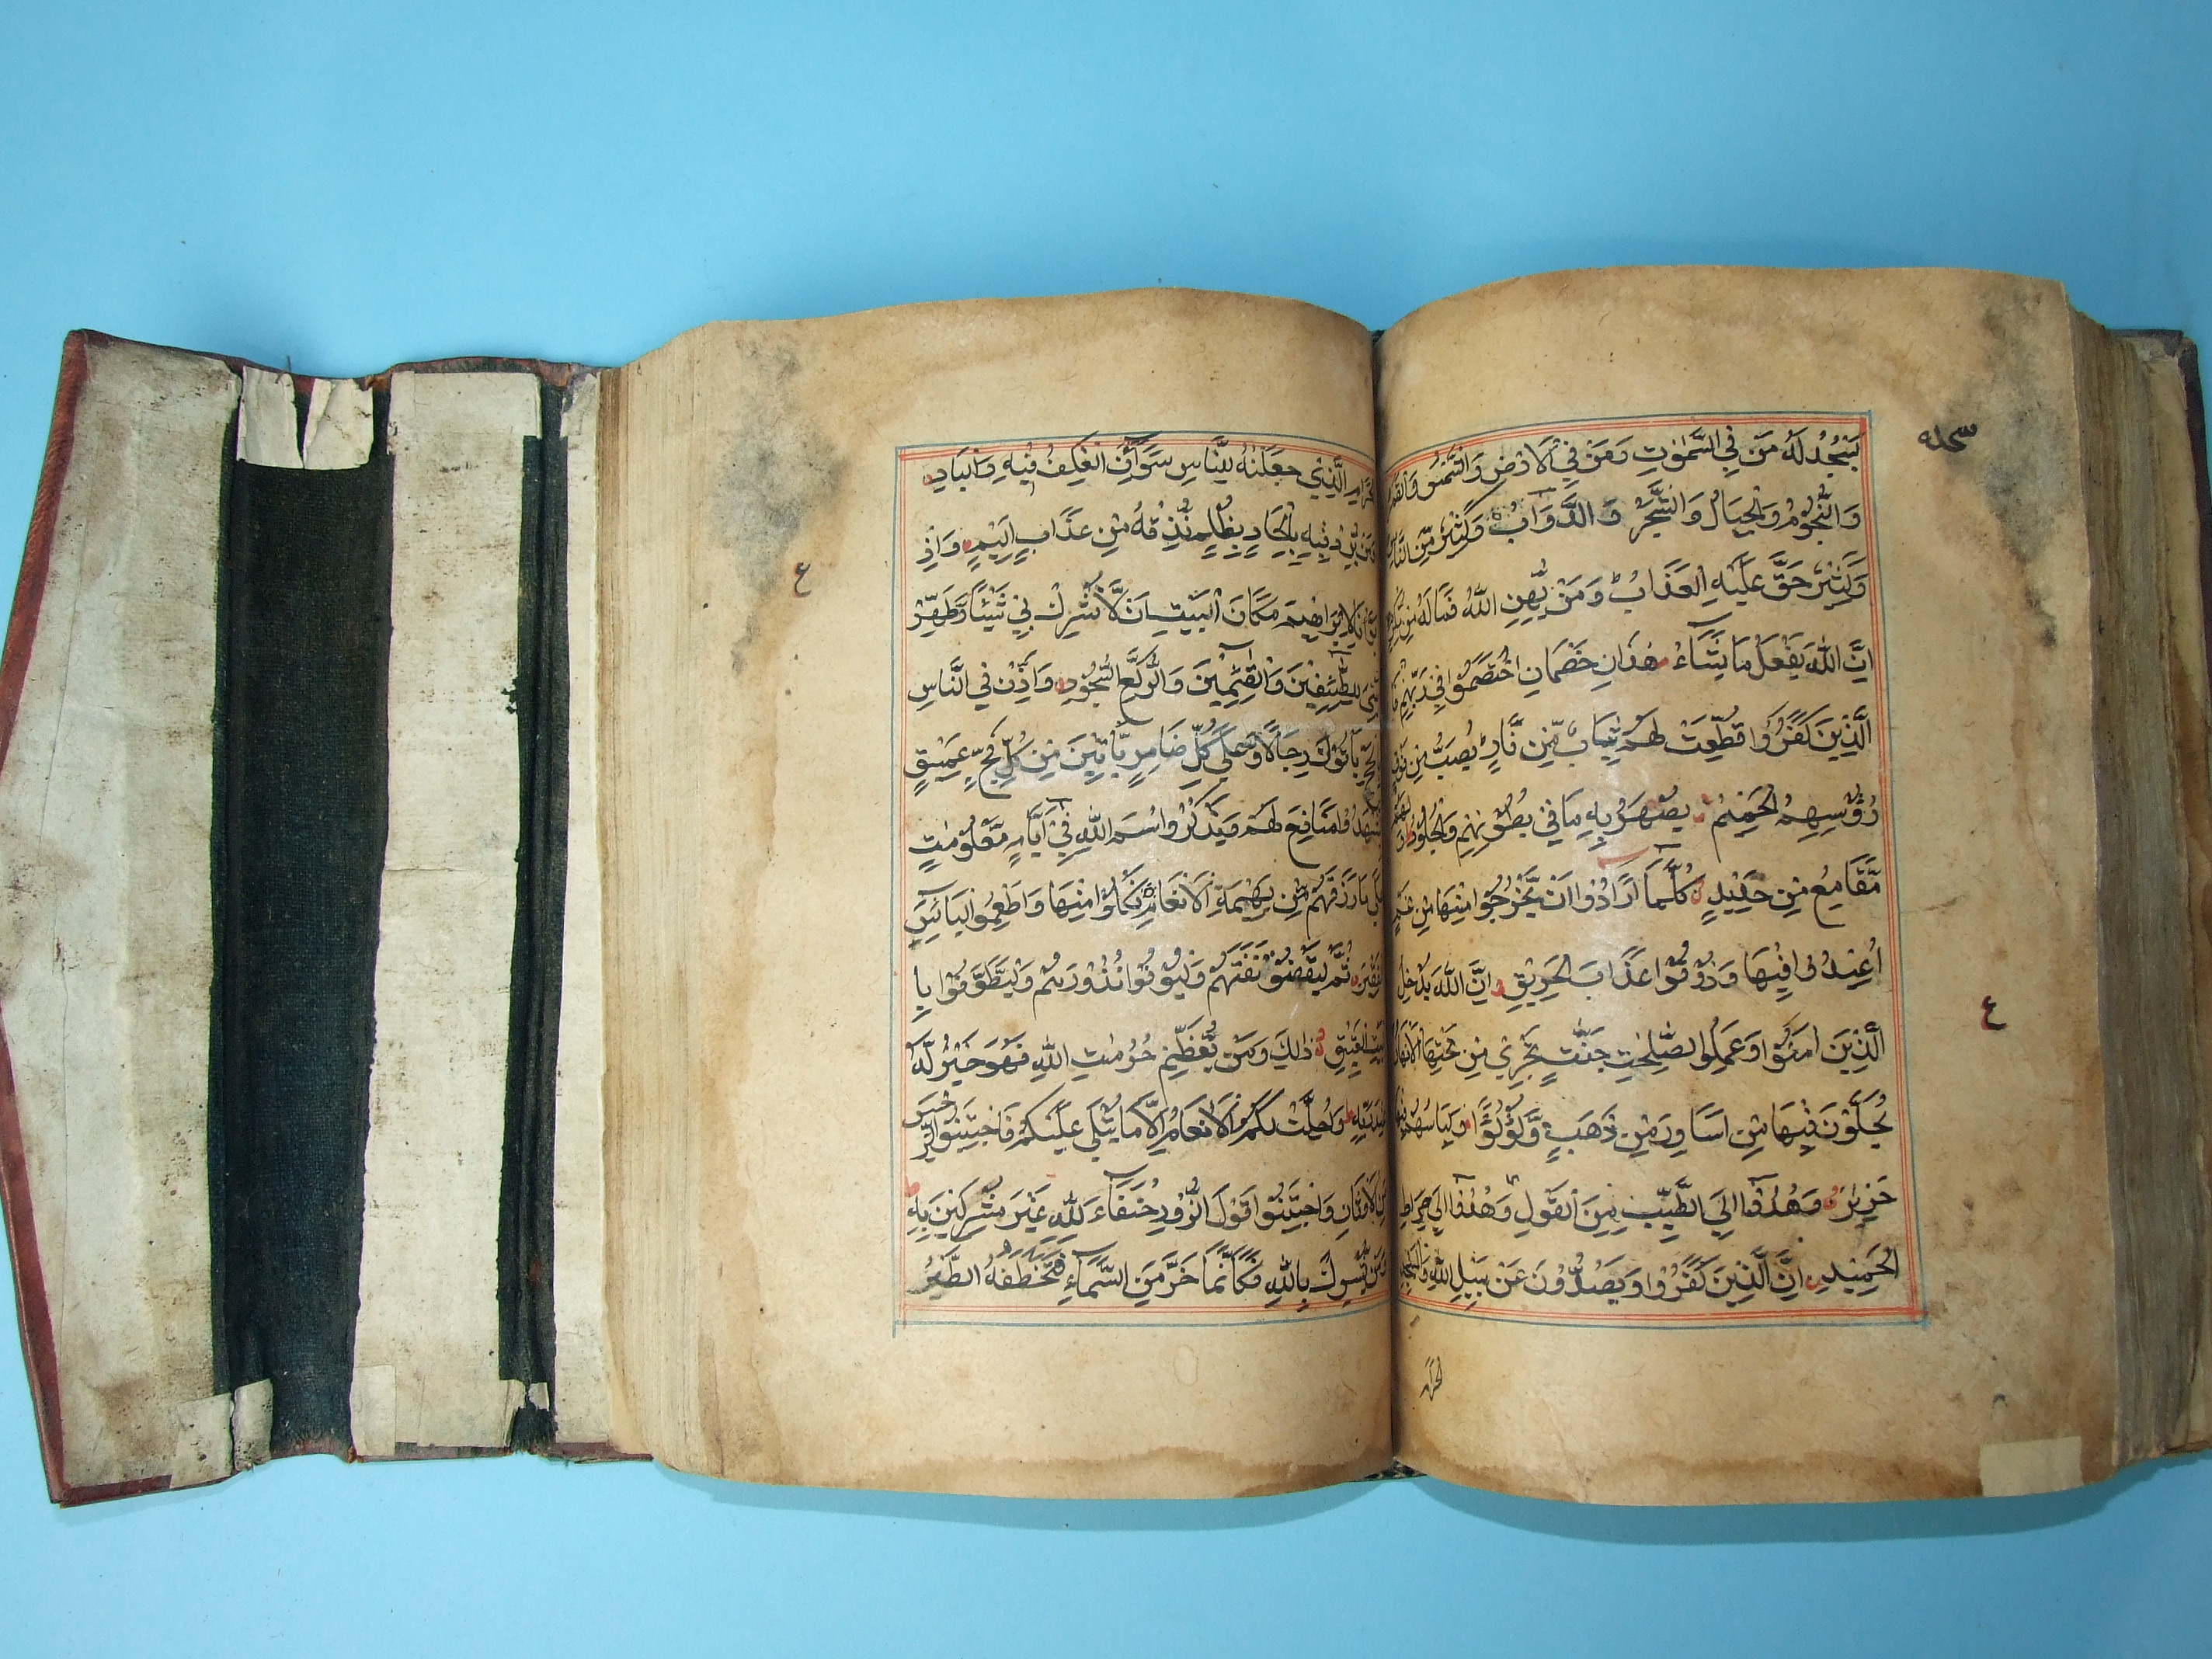 سجده
يَسْجُدُ لَهُ مَنْ فِي السَّمٰوٰتِ وَمَنْ فِي الْاَرْضِ وَالشَّمْسُ وَالْقَمَرُ
وَالنُّجُوْمُ وَالْجِبَالُ وَالشَّجَرُ وَالدَّوَآبُّ وَكَثِيْرٌ مِّنَ النَّاسِ
وَكَثِيْرٌ حَقَّ عَلَيْهِ الْعَذَابُ وَمَنْ يُّهِنِ اللّٰهُ فَمَا لَهُ مِنْ مُّكْرِمٍ
اِنَّ اللّٰهَ يَفْعَلُ مَا يَشَآءُ هٰذَانِ خَصْمَانِ اخْتَصَمُوْا فِيْ رَبِّهِمْ فَا
الَّذِيْنَ كَفَرُوْا قُطِّعَتْ لَهُمْ ثِيَابٌ مِّنْ نَّارٍ يُصَبُّ مِنْ فَوْقِ
رُءُوْسِهِمُ الْحَمِيْمُ يُصْهَرُ بِهٖ مَا فِيْ بُطُوْنِهِمْ وَالْجُلُوْدُ وَلَهُمْ
مَّقَامِعُ مِنْ حَدِيْدٍ كُلَّمَآ اَرَادُوْا اَنْ يَّخْرُجُوْا مِنْهَا مِنْ غَمٍّ
اُعِيْدُوْا فِيْهَا وَذُوْقُوْا عَذَابَ الْحَرِيْقِ اِنَّ اللّٰهَ يُدْخِلُ
الَّذِيْنَ اٰمَنُوْا وَعَمِلُوا الصّٰلِحٰتِ جَنّٰتٍ تَجْرِيْ مِنْ تَحْتِهَا الْاَنْهَارُ
ع
يُحَلَّوْنَ فِيْهَا مِنْ اَسَاوِرَ مِنْ ذَهَبٍ وَّلُؤْلُؤًا وَلِبَاسُهُمْ فِيْهَا
حَرِيْرٌ وَهُدُوْٓا اِلَى الطَّيِّبِ مِنَ الْقَوْلِ وَهُدُوْٓا اِلٰى صِرَاطِ
الْحَمِيْدِ اِنَّ الَّذِيْنَ كَفَرُوْا وَيَصُدُّوْنَ عَنْ سَبِيْلِ اللّٰهِ وَالْمَسْجِدِ
الحرام
الْحَرَامِ الَّذِيْ جَعَلْنٰهُ لِلنَّاسِ سَوَآءَنِ الْعَاكِفُ فِيْهِ وَالْبَادِ
وَمَنْ يُّرِدْ فِيْهِ بِاِلْحَادٍ بِظُلْمٍ نُّذِقْهُ مِنْ عَذَابٍ اَلِيْمٍ وَاِذْ
ع
بَوَّاْنَا لِاِبْرَاهِيْمَ مَكَانَ الْبَيْتِ اَنْ لَّا تُشْرِكْ بِيْ شَيْئًا وَّطَهِّرْ
بَيْتِيَ لِلطَّآئِفِيْنَ وَالْقَآئِمِيْنَ وَالرُّكَّعِ السُّجُوْدِ وَاَذِّنْ فِي النَّاسِ
بِالْحَجِّ يَأْتُوْكَ رِجَالًا وَّعَلٰى كُلِّ ضَامِرٍ يَّأْتِيْنَ مِنْ كُلِّ فَجٍّ عَمِيْقٍ
لِيَشْهَدُوْا مَنَافِعَ لَهُمْ وَيَذْكُرُوا اسْمَ اللّٰهِ فِيْٓ اَيَّامٍ مَّعْلُوْمٰتٍ
عَلٰى مَا رَزَقَهُمْ مِّنْ بَهِيْمَةِ الْاَنْعَامِ فَكُلُوْا مِنْهَا وَاَطْعِمُوا الْبَآئِسَ
الْفَقِيْرَ ثُمَّ لْيَقْضُوْا تَفَثَهُمْ وَلْيُوْفُوْا نُذُوْرَهُمْ وَلْيَطَّوَّفُوْا بِا
لْبَيْتِ الْعَتِيْقِ ذٰلِكَ وَمَنْ يُّعَظِّمْ حُرُمٰتِ اللّٰهِ فَهُوَ خَيْرٌ لَّهُ
عِنْدَ رَبِّهٖ وَاُحِلَّتْ لَكُمُ الْاَنْعَامُ اِلَّا مَا يُتْلٰى عَلَيْكُمْ فَاجْتَنِبُوا الرِّجْسَ
مِنَ الْاَوْثَانِ وَاجْتَنِبُوْا قَوْلَ الزُّوْرِ حُنَفَآءَ لِلّٰهِ غَيْرَ مُشْرِكِيْنَ بِهٖ
وَمَنْ يُّشْرِكْ بِاللّٰهِ فَكَاَنَّمَا خَرَّ مِنَ السَّمَآءِ فَتَخْطَفُهُ الطَّيْرُ